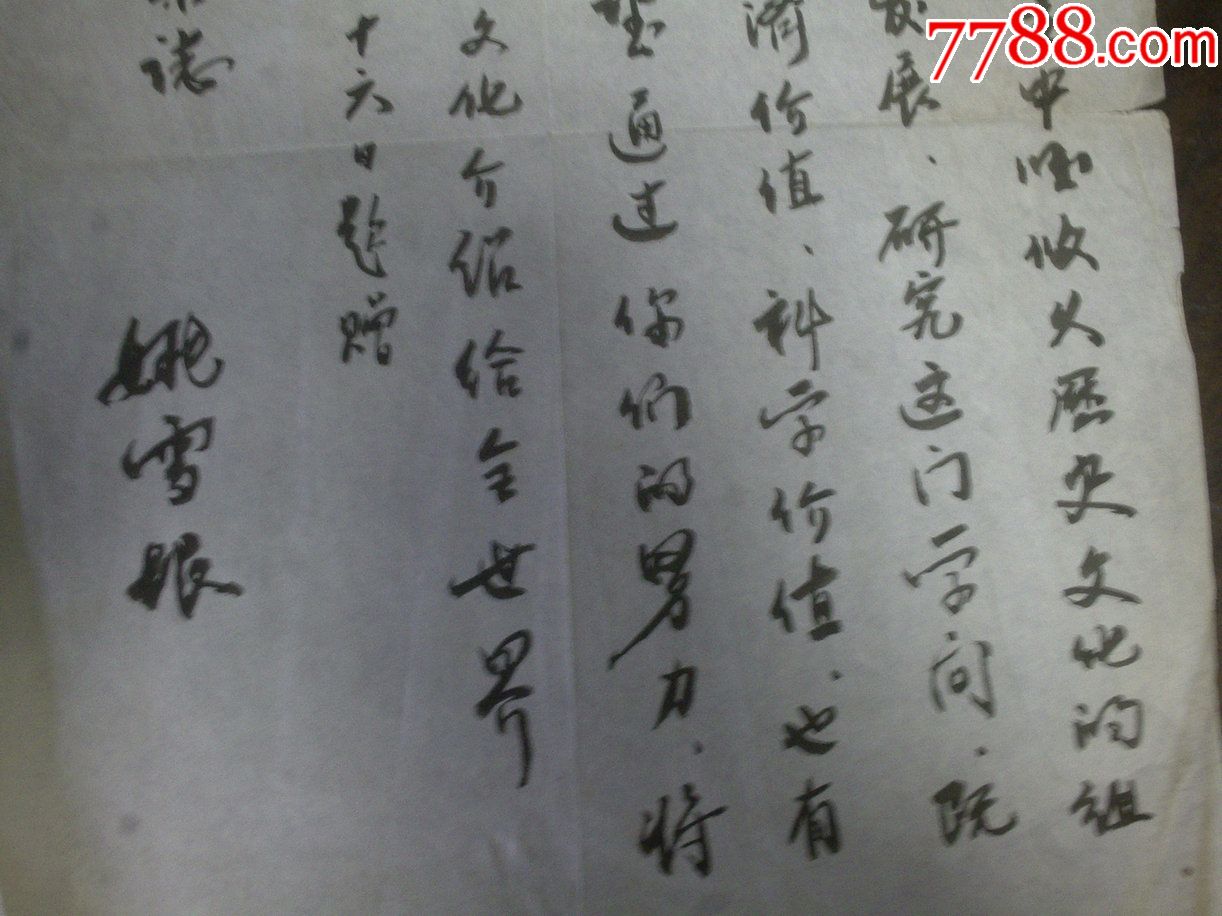 中国悠久歷史文化的组
发展、研究这门学问、既
济价值、科学价值、也有
望通过你们的努力、将
文化介绍给全世界
十六日題赠
誌
姚雪垠
7788.com